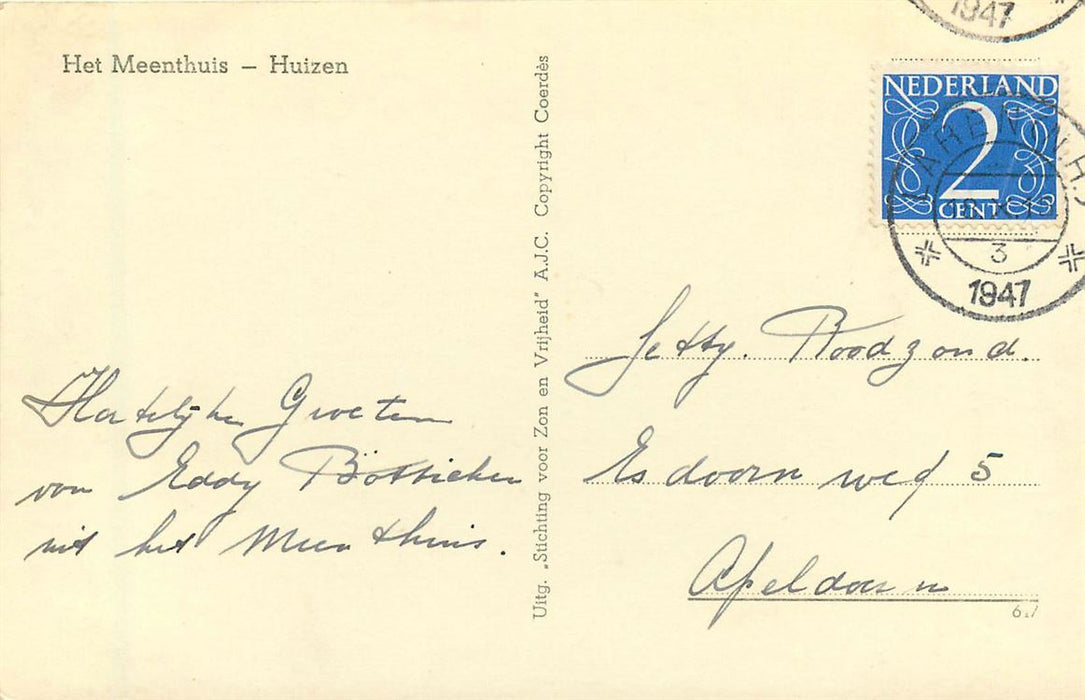 Het Meenthuis – Huizen
Hartelijke Groeten
van Eddy
uit het Meenthuis.
Uitg. „Stichting voor Zon en Vrijheid" A.J.C. Copyright Coerdès
1947
NEDERLAND
2
CENT
LAREN (N.H.)
3
1947
Jetty. Roodzand.
Esdoornweg 5
Apeldoorn